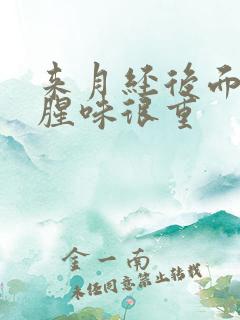 来月经后而
腥味很重
金一南
未经同意禁止转载